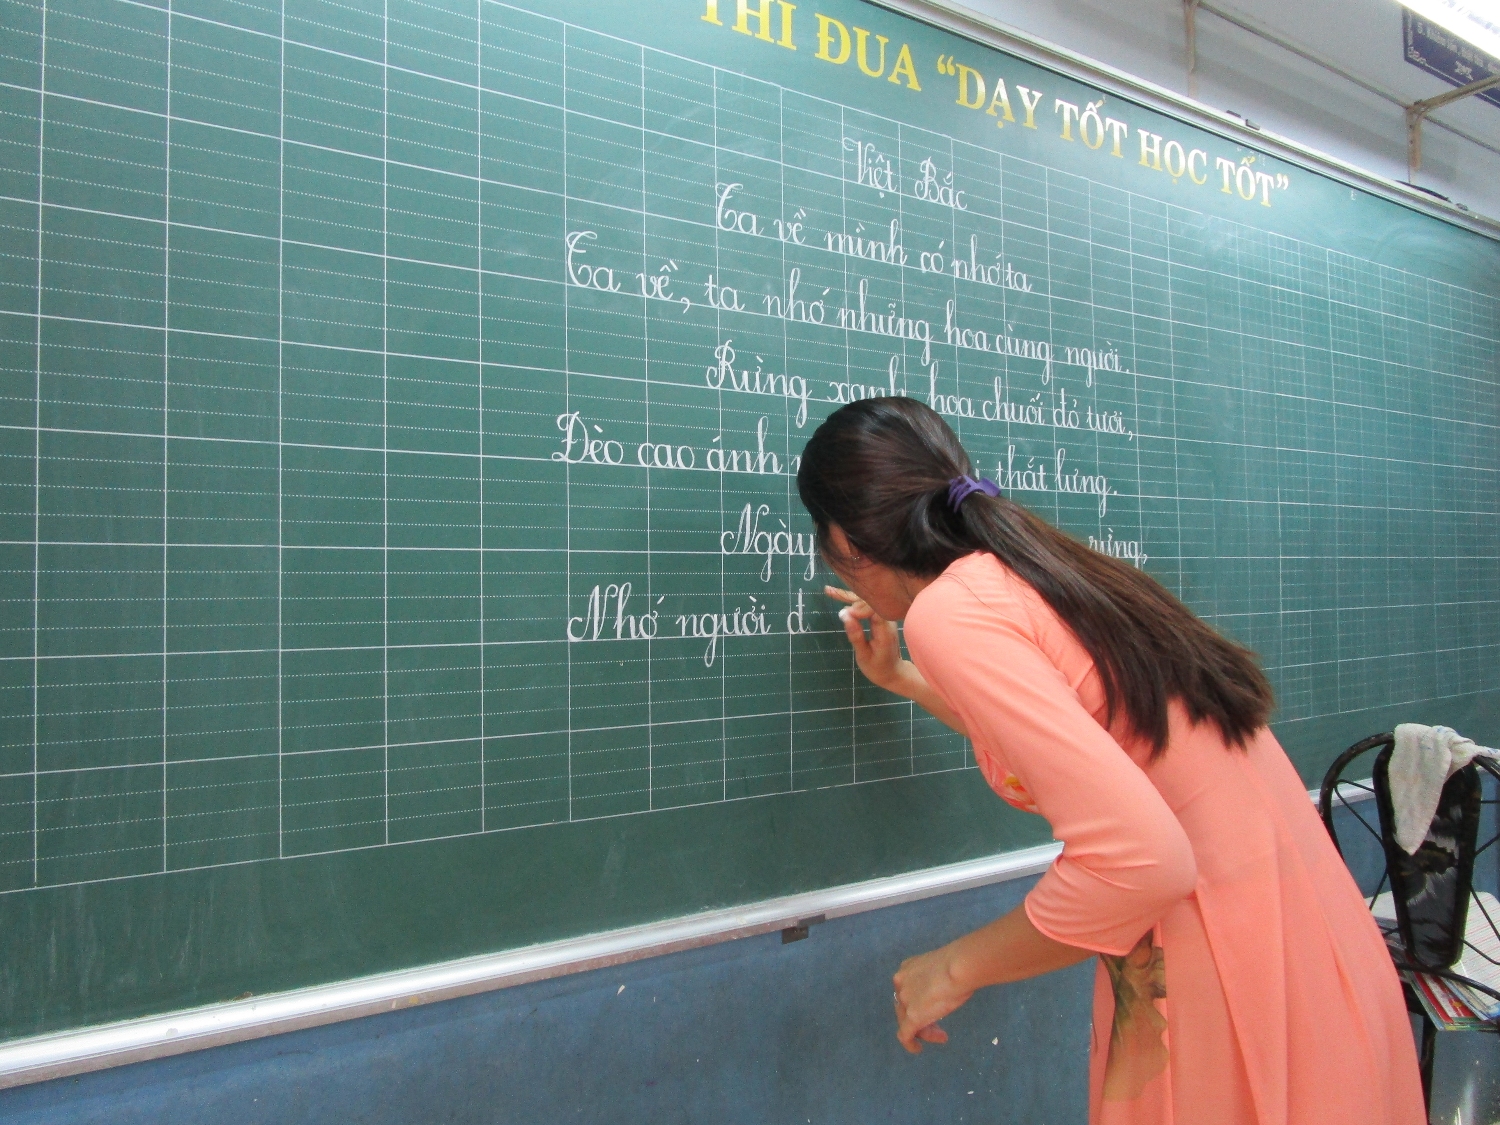 THI ĐUA “DẠY TỐT HỌC TỐT”
Việt Bắc
Ta về mình có nhớ ta
Ta về, ta nhớ những hoa cùng người.
Rừng xanh hoa chuối đỏ tươi,
Đèo cao ánh thắt lưng.
Ngày rừng,
Nhớ người đ